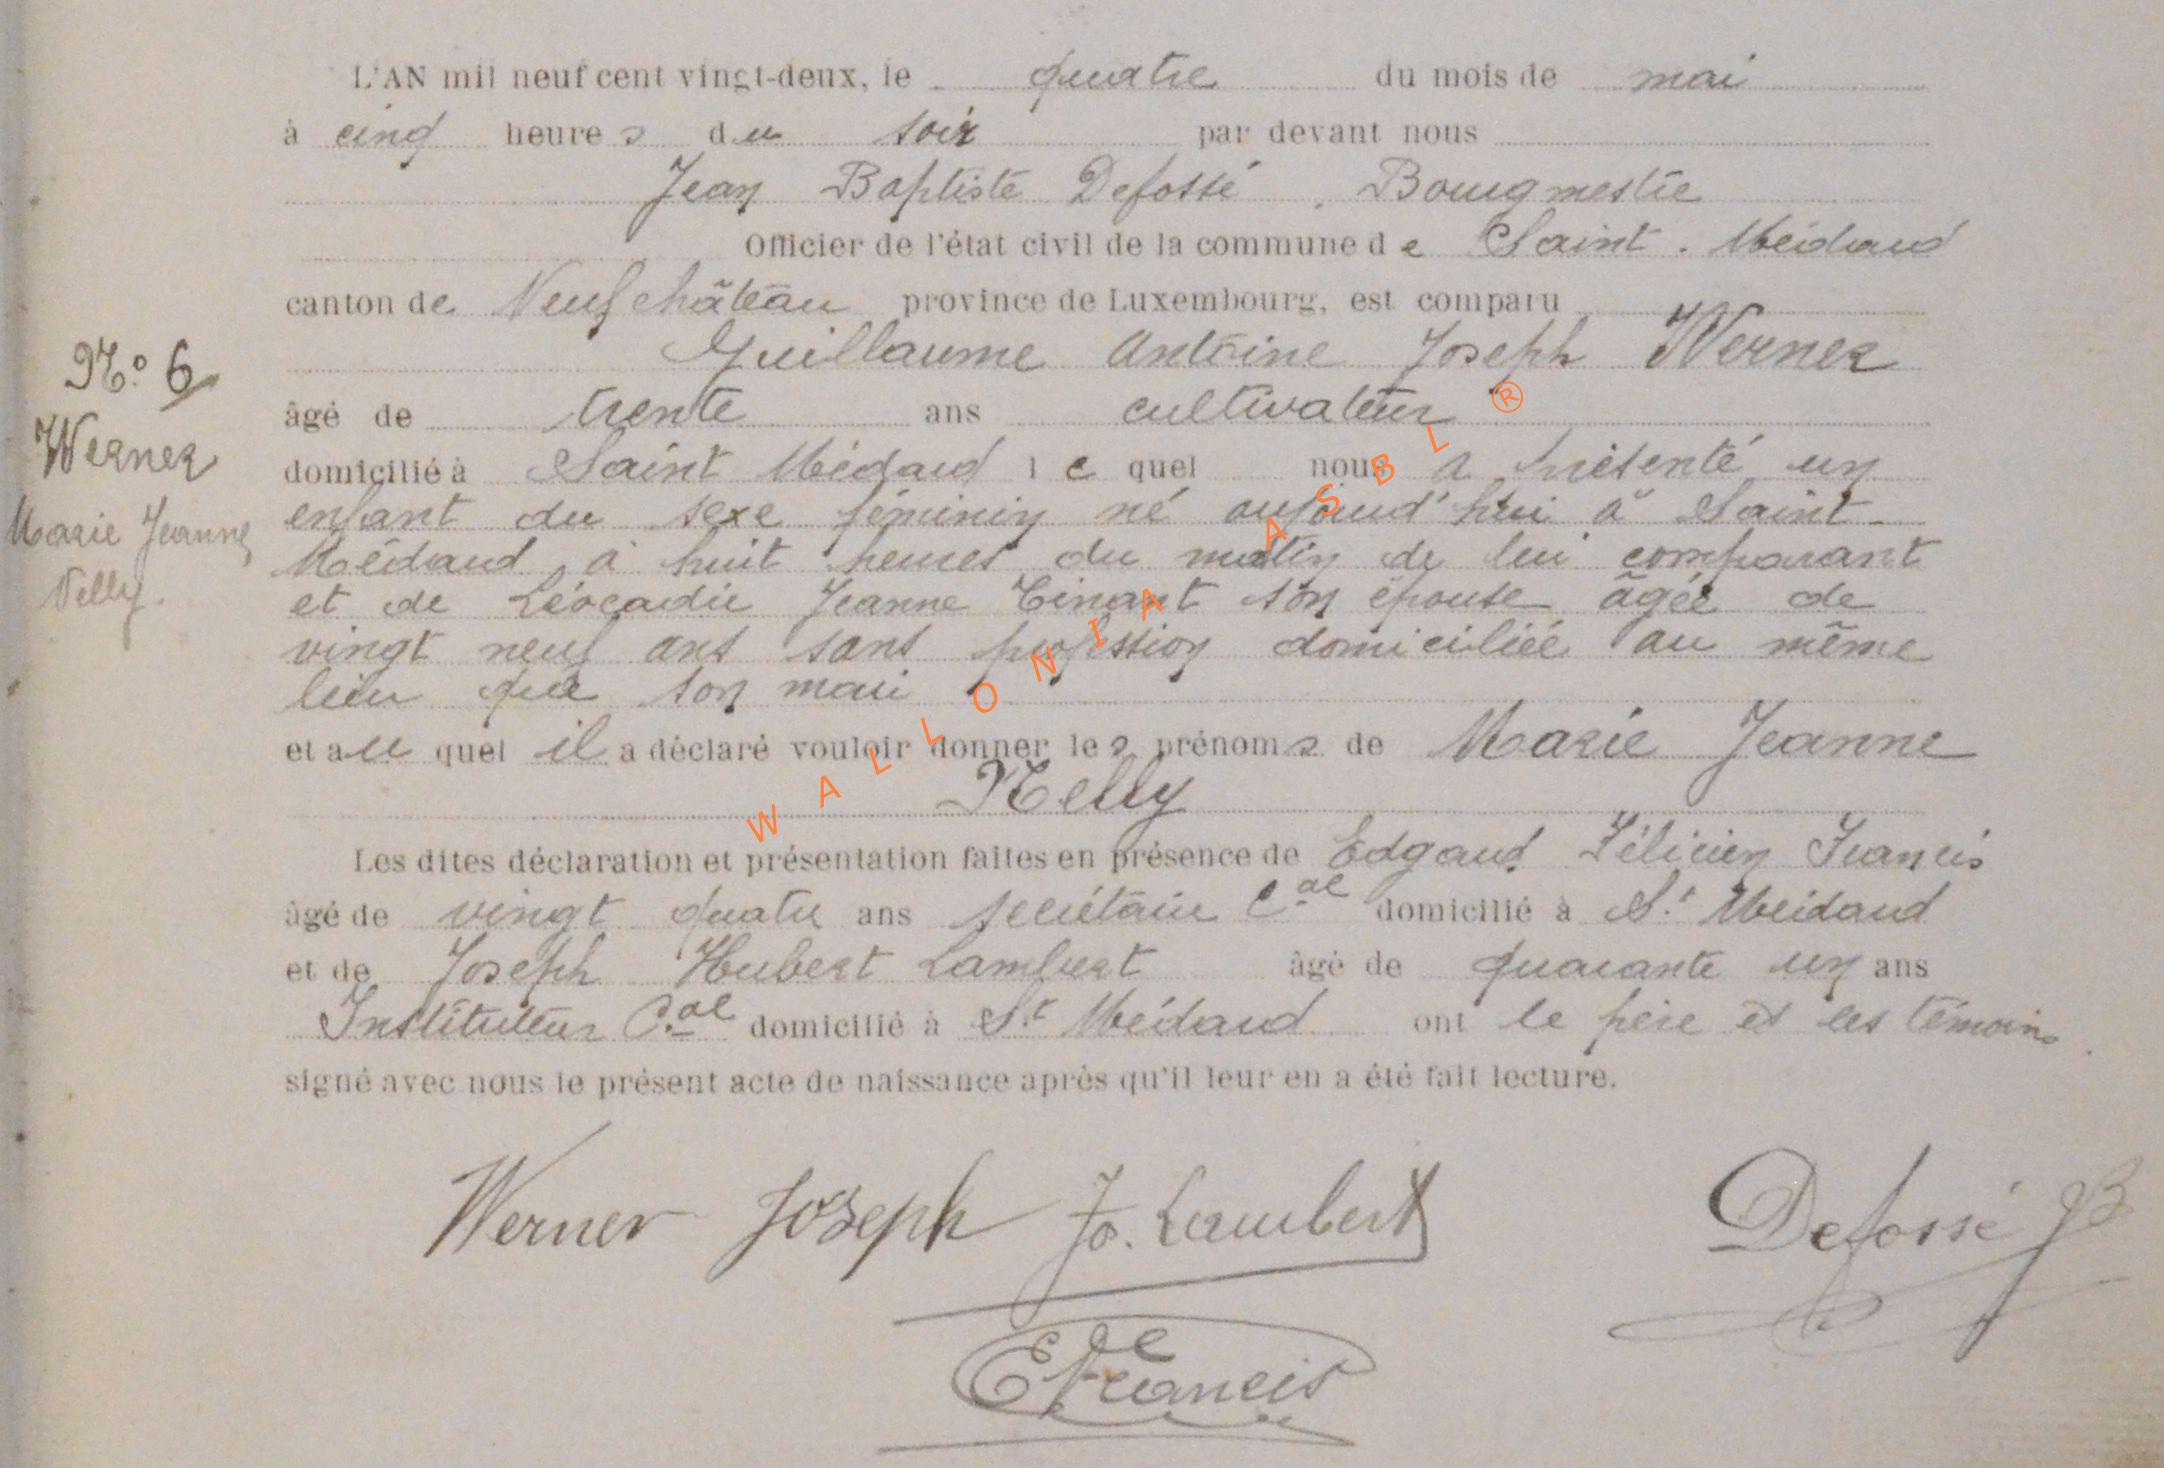 L'AN mil neuf cent vingt-deux, le quatre du mois de mai
à cinq heures du soir par devant nous
Jean Baptiste Defossé, Bourgmestre
Officier de l'état civil de la commune de Saint-Médard
canton de Neufchâteau province de Luxembourg, est comparu
Guillaume Antoine Joseph Werner
âgé de trente ans cultivateur
domicilié à Saint Médard lequel nous a présenté un
enfant du sexe féminin né aujourd'hui à Saint-
Médard à huit heures du matin de lui comparant
et de Léocadie Jeanne Tinant son épouse âgée de
vingt neuf ans sans profession domiciliée au même
lieu que son mari
et auquel il a déclaré vouloir donner les prénoms de Marie Jeanne
Nelly
Les dites déclaration et présentation faites en présence de Edgard Félicien Francis
âgé de vingt quatre ans secrétaire Cal domicilié à St Médard
et de Joseph Hubert Lambert âgé de quarante un ans
Instituteur Cal domicilié à St Médard ont le père et les témoins
signé avec nous le présent acte de naissance après qu'il leur en a été fait lecture.
No 6
Werner
Marie Jeanne
Nelly.
Werner Joseph Jo. Lambert Defossé JB
E Francis
WALLONIA ASBL ®